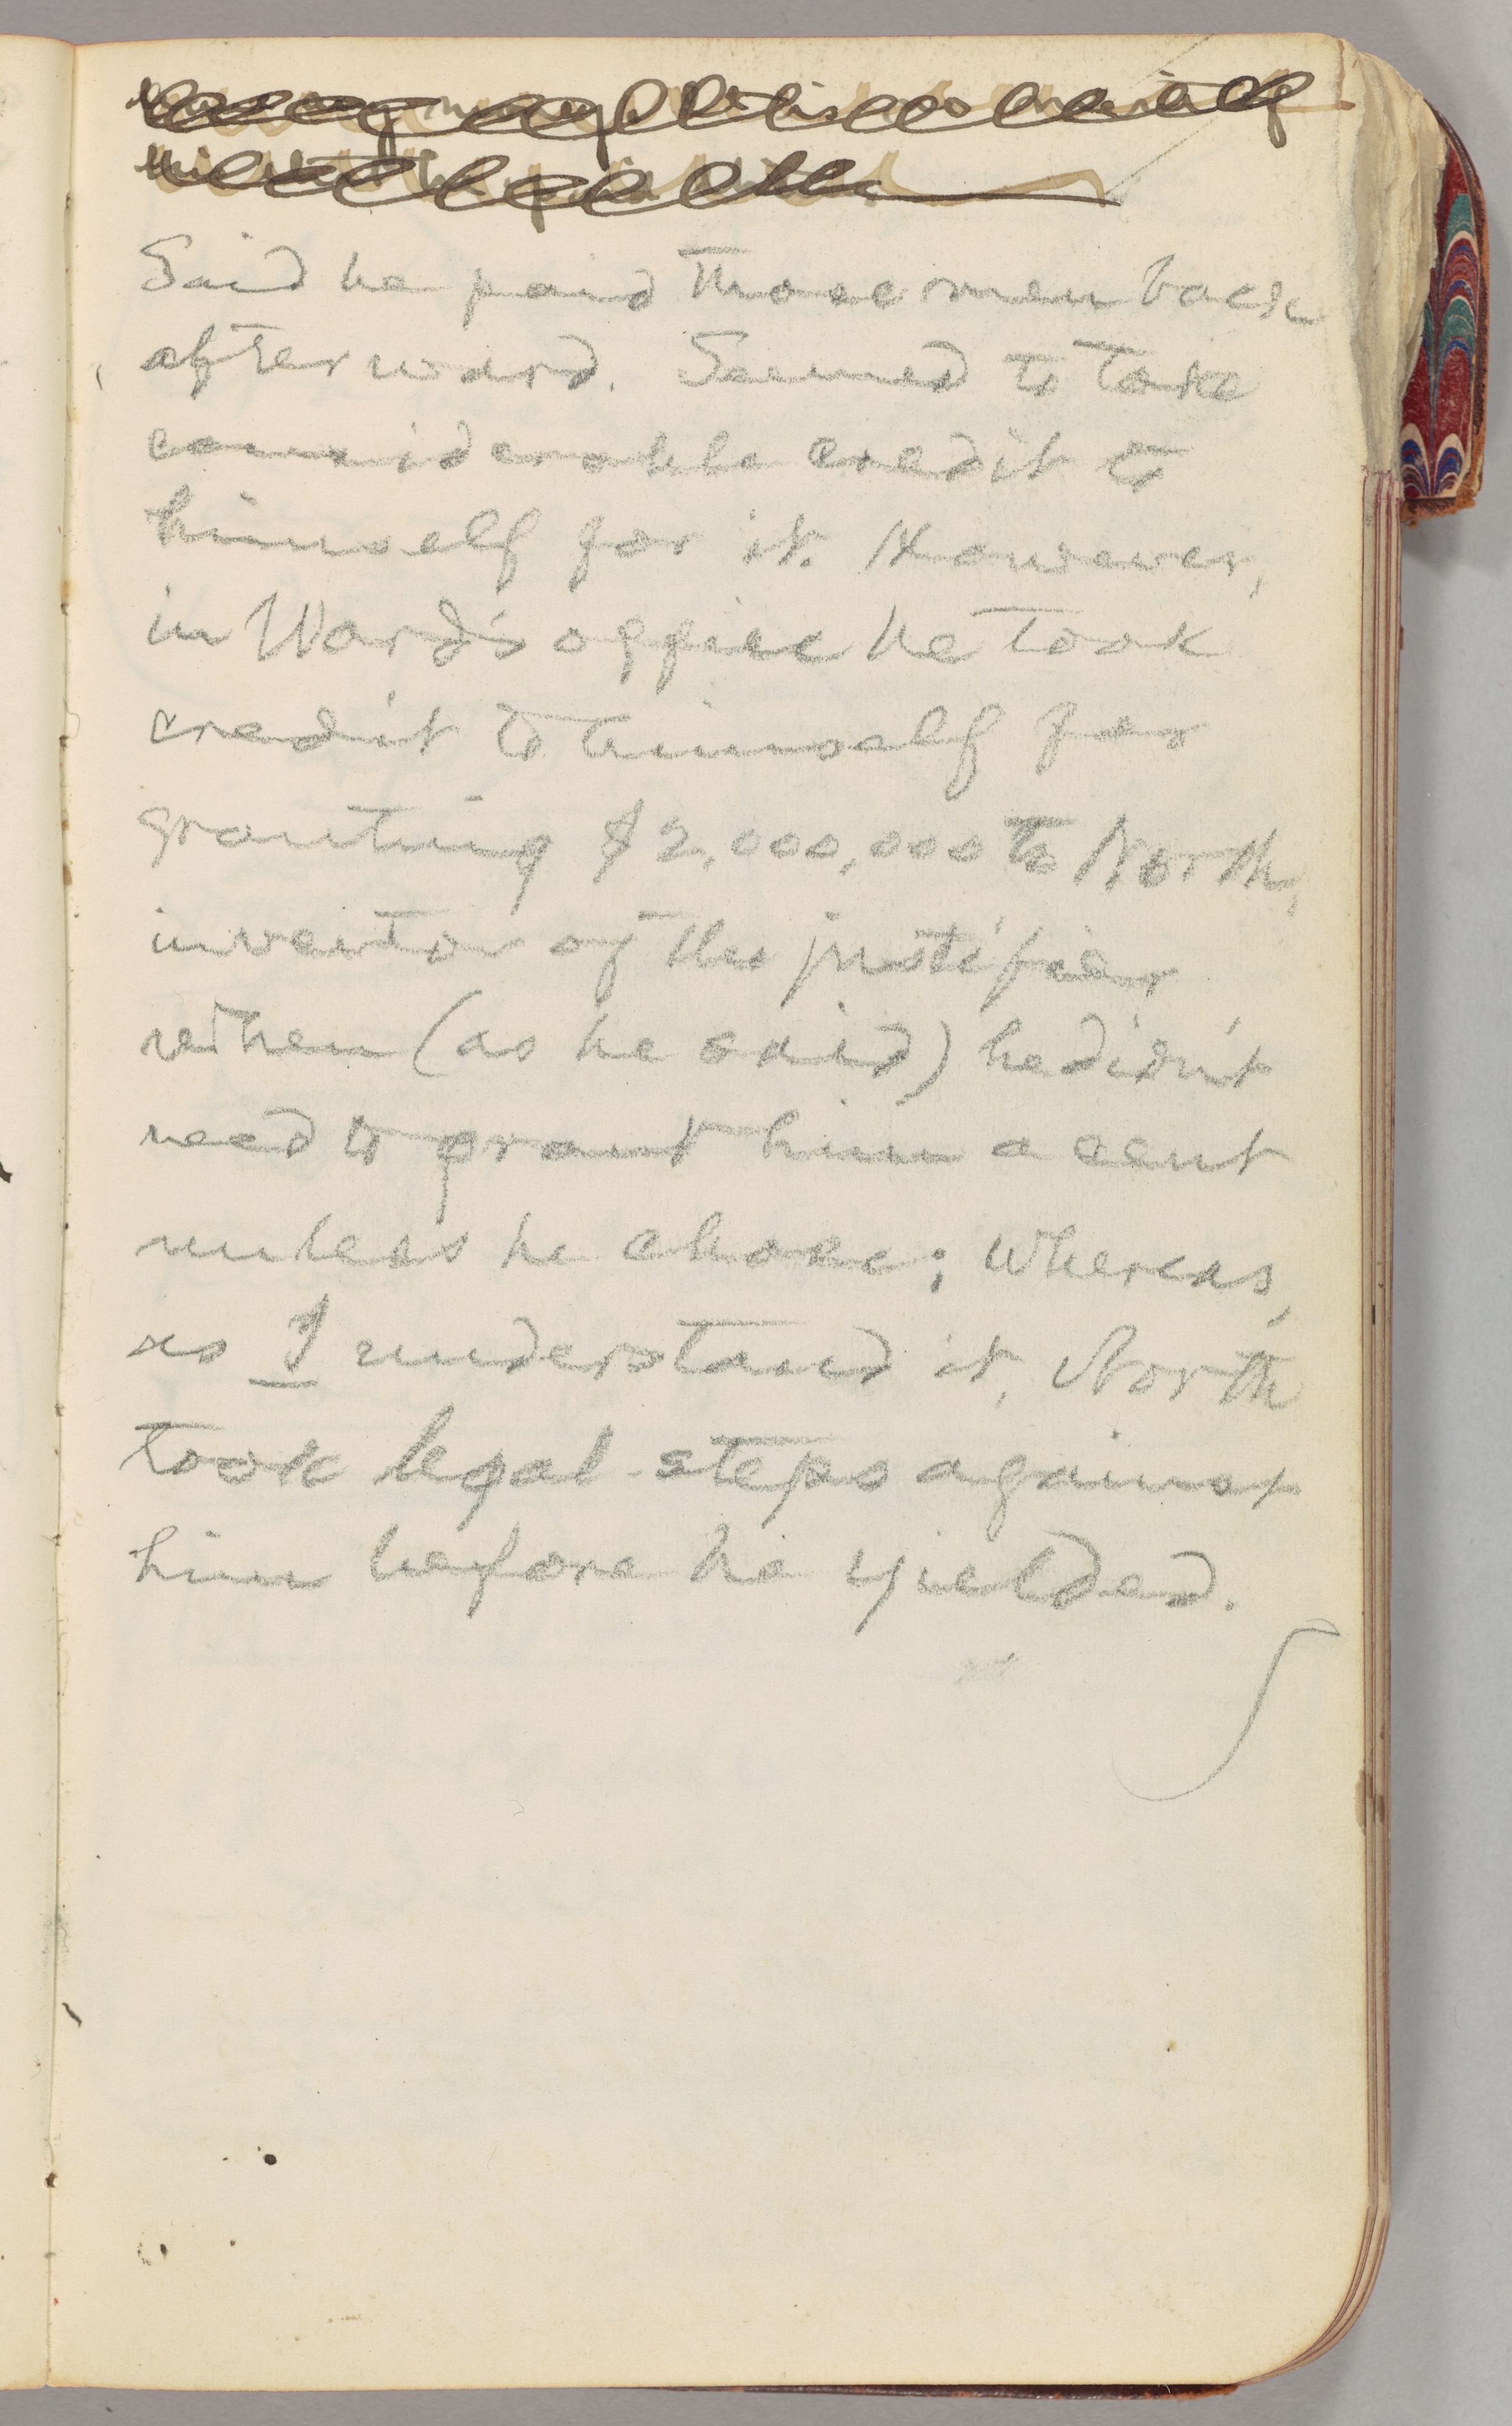 Said he paid those men back
afterward. Seemed to take
considerable credit to
himself for it. However,
in Ward's office he took
credit to himself for
granting $2,000,000 to North,
inventor of the justifier
when (as he said) he didn't
need to grant him a cent
unless he chose; whereas,
as I understand it, North
took legal steps against
him before he yielded.